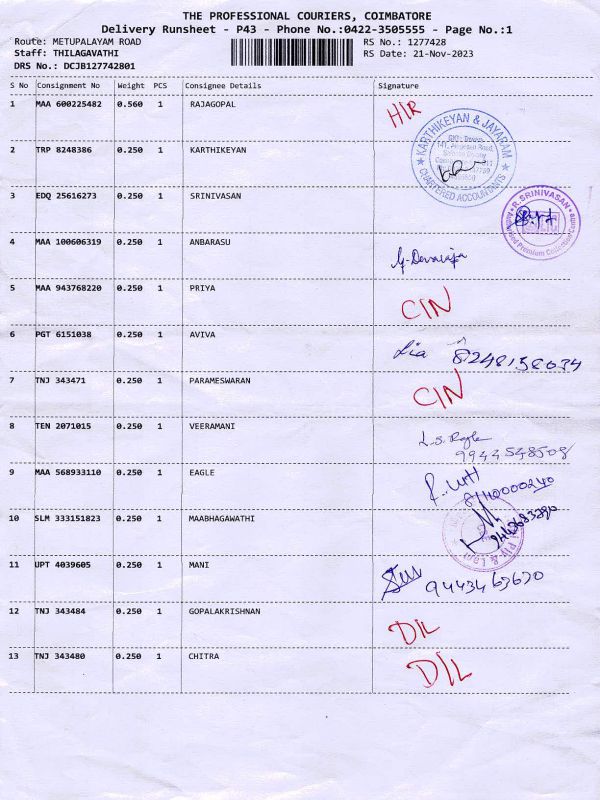 THE PROFESSIONAL COURIERS, COIMBATORE
Delivery Runsheet - P43 - Phone No.:0422-3505555 - Page No.:1
Route: METUPALAYAM ROAD RS No.: 1277428
Staff: THILAGAVATHI RS Date: 21-Nov-2023
DRS No.: DCJB127742801
S No Consignment No Weight PCS Consignee Details Signature
1 MAA 600225482 0.560 1 RAJAGOPAL H/R
KARTHIKEYAN & JAYARAM
CHARTERED ACCOUNTANTS
2 TRP 8248386 0.250 1 KARTHIKEYAN
3 EDQ 25616273 0.250 1 SRINIVASAN
R. SRINIVASAN
4 MAA 100606319 0.250 1 ANBARASU
5 MAA 943768220 0.250 1 PRIYA C/N
6 PGT 6151038 0.250 1 AVIVA Lia 8248158034
7 TNJ 343471 0.250 1 PARAMESWARAN C/N
8 TEN 2071015 0.250 1 VEERAMANI
9944548508
9 MAA 568933110 0.250 1 EAGLE
8110000240
10 SLM 333151823 0.250 1 MAABHAGAWATHI
11 UPT 4039605 0.250 1 MANI 9443463620
12 TNJ 343484 0.250 1 GOPALAKRISHNAN D/L
13 TNJ 343480 0.250 1 CHITRA D/L